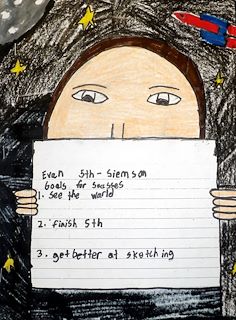 Evan 5th - Siemson
Goals for Sucsses
1. see the world
2. finish 5th
3. get better at sketching